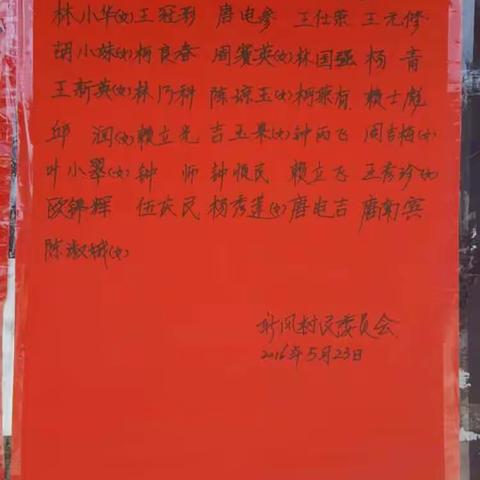 林小华(女) 王冠利 唐电参 王仕荣 王元修
胡小妹(女) 柯良春 周赛英(女) 林国强 杨青
王新英(女) 林乃科 陈谅玉(女) 柯業有 赖士彪
邱润(女) 赖立光 吉玉果(女) 钟丙飞 周吉梅(女)
叶小翠(女) 钟师 钟恒民 赖立飞 王秀珍(女)
欧锦辉 伍庆民 杨秀莲(女) 唐电吉 唐南宾
陈淑城(女)
新风村民委员会
2016年5月23日